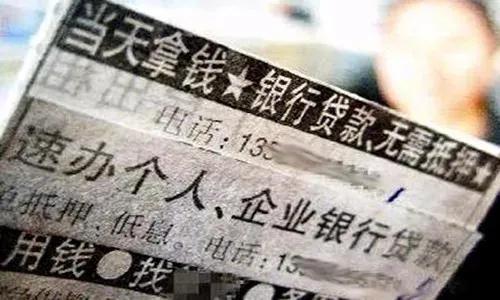 当天拿钱★银行贷款、无需抵押★
电话:13
速办个人、企业银行贷款
抵押、低息。电话:13
用钱●找